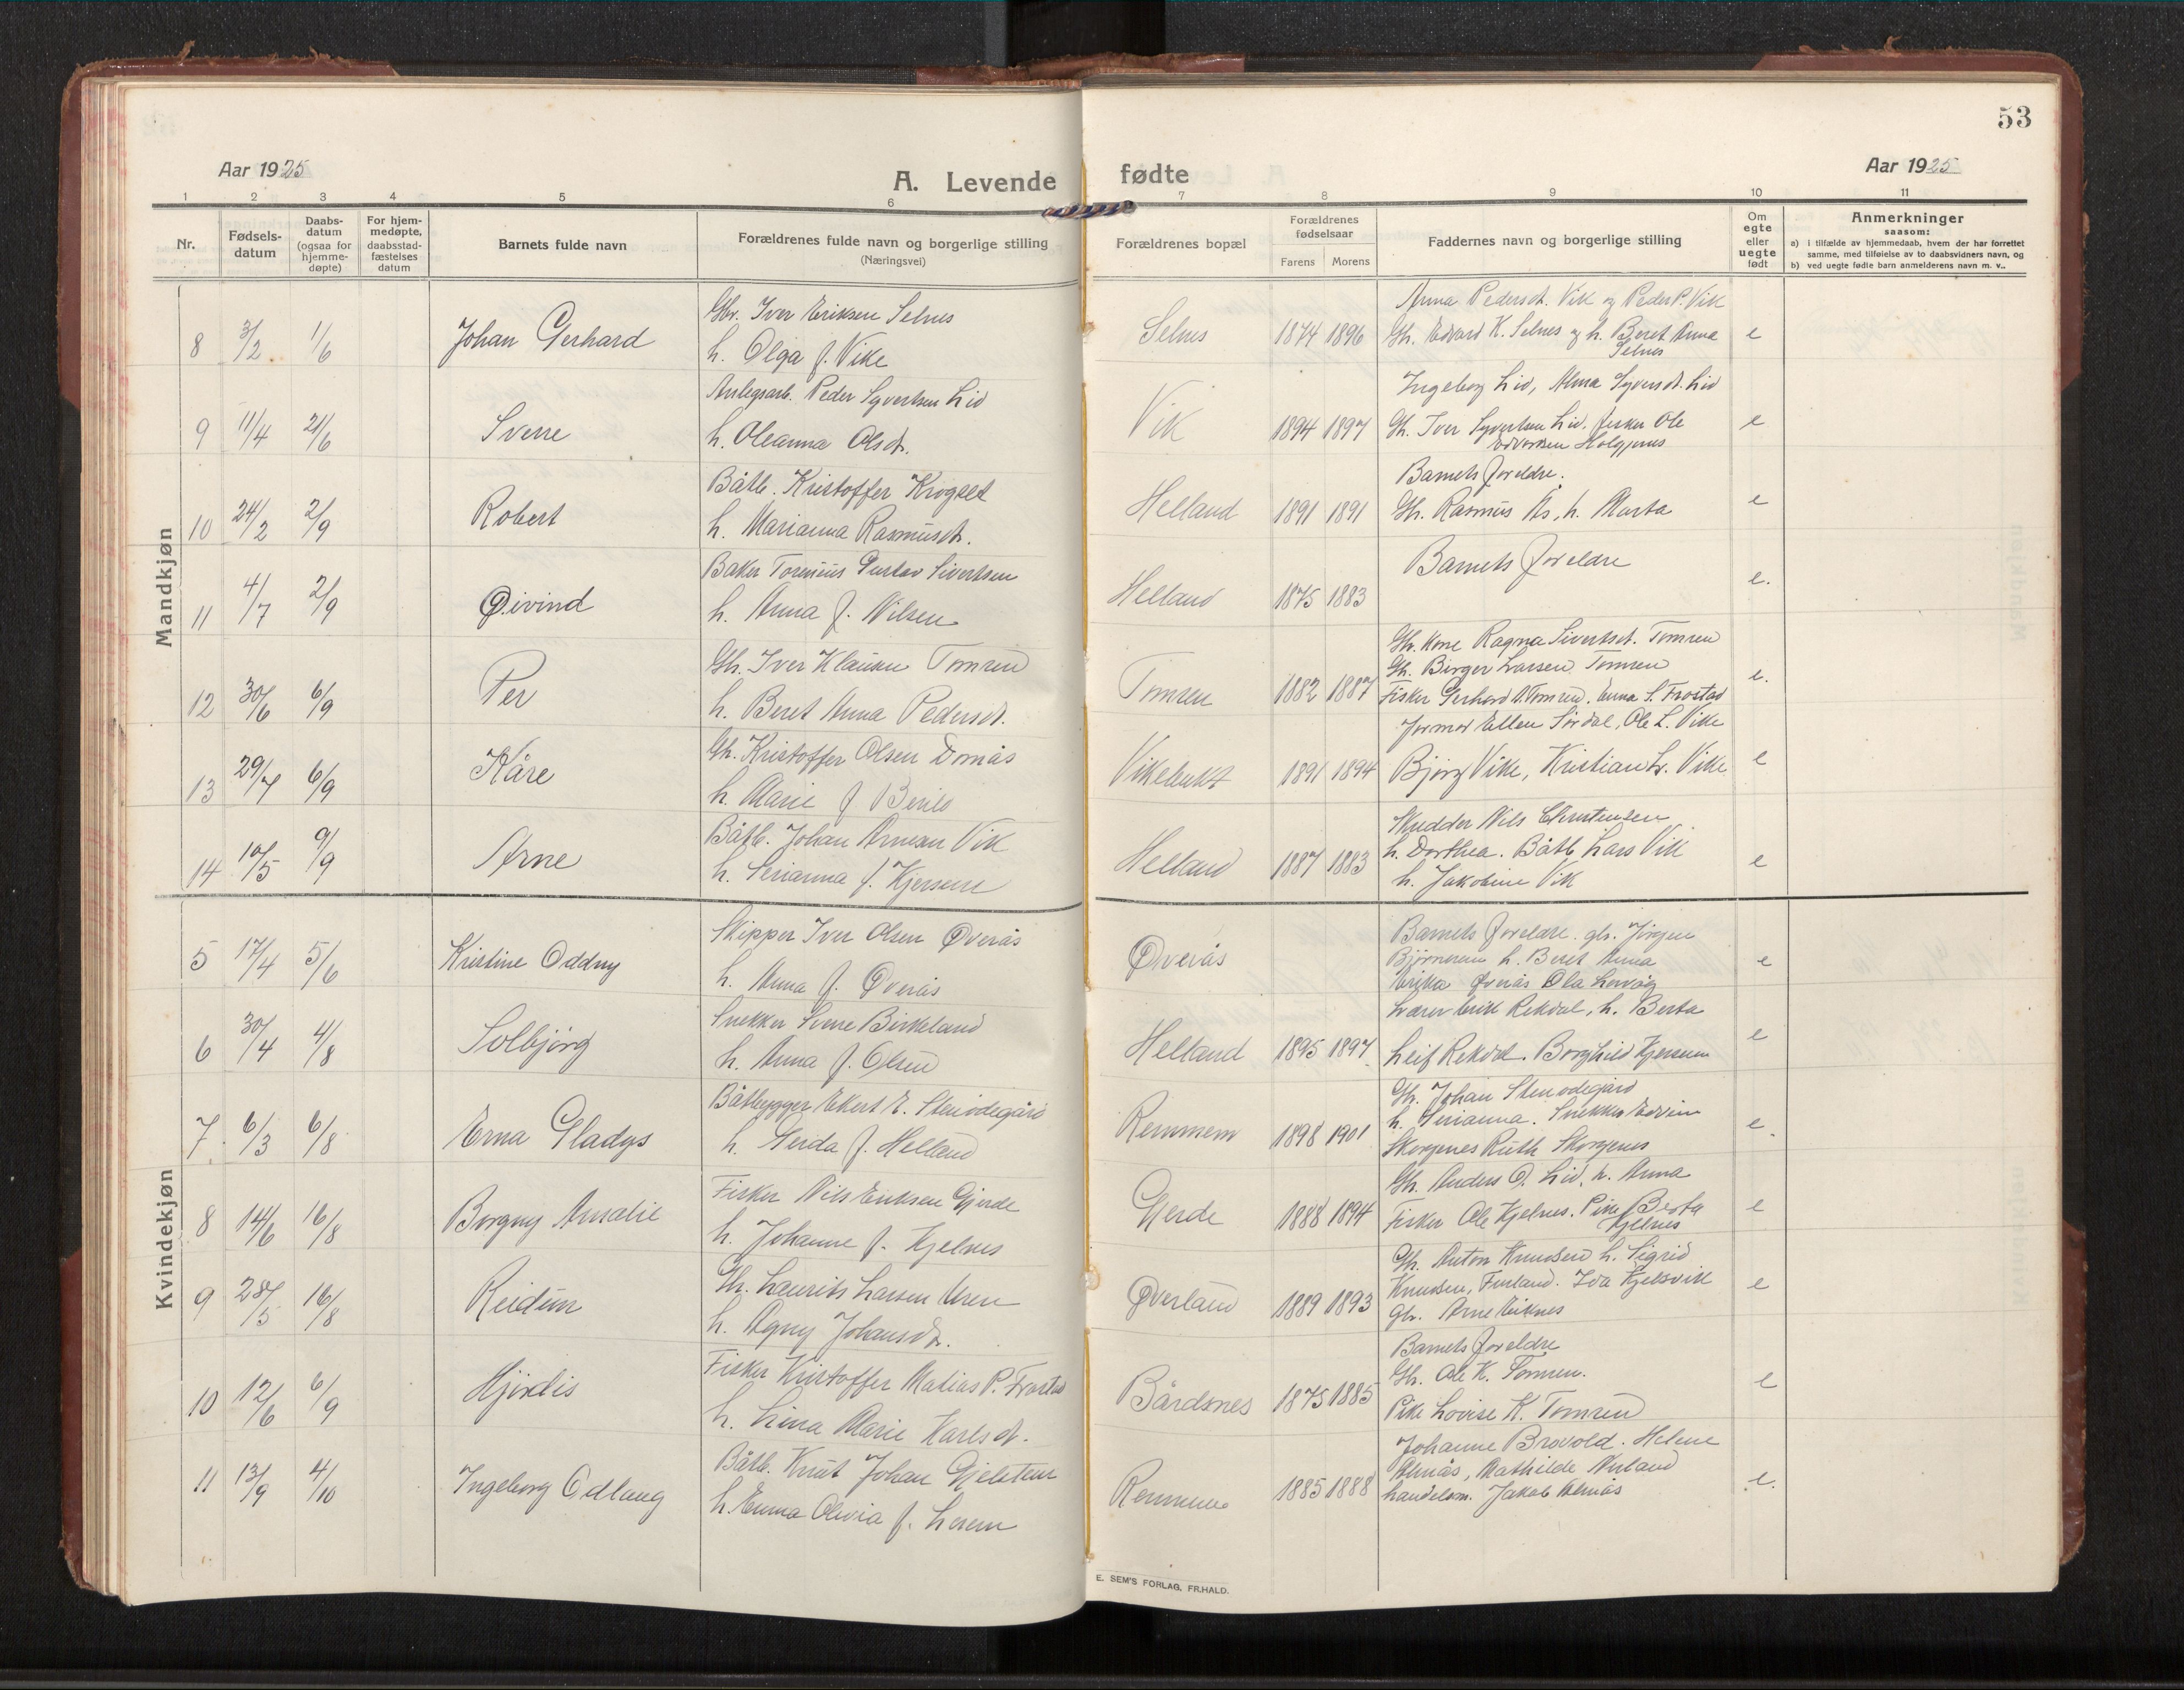 53
Aar 1925
A. Levende fødte
Aar 1925
1 2 3 4 5 6 7 8 9 10 11
Nr.
Fødsels-
datum
Daabs-
datum
(ogsaa for
hjemme-
døpte)
For hjem-
medøpte,
daabsstad-
fæstelses
datum
Barnets fulde navn
Forældrenes fulde navn og borgerlige stilling
(Næringsvei)
Forældrenes bopæl
Forældrenes
fødselsaar
Farens Morens
Faddernes navn og borgerlige stilling
Om
egte
eller
uegte
født
Anmerkninger
saasom:
a) i tilfælde av hjemmedaab, hvem der har forrettet
samme, med tilføielse av to daabsvidners navn, og
b) ved uegte fødte barn anmelderens navn m. v..
Mandkjøn
8 3/2 1/6 Johan Gerhard
Gbr. Iver Eriksen Selnes
h. Olga f. Vike
Selnes 1874 1896
Anna Pedersdt. Vik og Peder P. Vik
Gb. Edvard K. Selnes og h. Beret Anna
Selnes
e
9 11/4 21/6 Sverre
Anlegsarb. Peder Syvertsen Lid
h. Oleanna Olsdt.
Vik 1894 1897
Ingeborg Lid, Alma Syversdt. Lid
Gb. Iver Syvertsen Lid. fisker Ole
Edvardsen Holgjenes
e
10 24/2 2/9 Robert
Båtb. Kristoffer Krogset
h. Marianna Rasmusdt.
Helland 1891 1891
Barnets foreldre.
Gb. Rasmus Ås, h. Marta
e
11 4/7 2/9 Øivind
Baker Torenius Gustav Sivertsen
h. Anna f. Nilsen
Helland 1875 1883
Barnets foreldre
e.
12 30/6 6/9 Per
Gb. Iver Klausen Tomren
h. Beret Anna Pedersdt.
Tomren 1882 1887
Gb. kone Ragna Sivertsdt. Tomren
Gb. Birger Larsen Tomren
Fisker Gerhard A. Tomren. Anna S. Frostad
e.
13 29/7 6/9 Kåre
Gb. Kristoffer Olsen Domås
h. Marie f
Vikebukt 1891 1894
Jormor Ellen Sørdal, Ole L. Vike
Bjørg Vike, Kristian Lr. Vike
e
14 10/5 9/9 Arne
Båtb. Johan Arnean Vik
h. Serianna f. Kjersem
Helland 1887 1883
Skredder Nils Christensen
h. Dorthea. Båtb Lars Vik
h. Jakobine Vik
e
Kvindekjøn
5 17/4 5/6 Kristine Oddny
Skipper Iver Olsen Øverås
h. Anna f. Øverås
Øverås
Barnets foreldre. gb. Jørgen
Bjørnerem h. Beret Anna
Erika Øverås Ola Lervåg
e
6 30/4 4/8 Solbjørg
Snekker Sverre Birkeland
h. Anna f. Olsen
Helland 1895 1897
Lærer Erik Rekdal, h. Berta
Leif Rekdal. Borghild Kjersem
e
7. 6/3 6/8 Erna Gladys
Båtbygger Ekert E. Stenodegård
h. Gerda f. Helland
Remmem 1898 1901
Gb. Johan Stenodegård
h. Serianna. Snekker Edvin
Skorgenes Ruth Skorgenes
e.
8 14/6 16/8 Borgny Amalie
Fisker Nils Eriksen Gjerde
h. Johanne f. Kjelnes
Gjerde 1888 1894
Gb. Anders O. Lid, h. Anna
Fisker Ole Kjelnes. Pike Berta
Kjelnes
e
9 28/5 16/8 Reidun
Gb. Laurits Larsen Uren
h. Agny Johansdt.
Øverland 1889 1893
Gb. Anton Knudsen h. Sigrid
Knudsen, Furland. Ida Kjelsvik
gb. Arne Eiknes
e
10 12/6 6/9 Hjørdis
Fisker Kristoffer Matias P. Frostad
h. Lina Marie Karlsdt.
Bårdsnes 1875 1885
Barnets foreldre
Gb. Ole K. Tomren.
Pike Lovise K. Tomren
e
11 13/9 4/10 Ingeborg Odlaug
Båtb. Knut Johan Gjelsten
h. Emma Olivia f. Lerem
Remmem 1885 1888
Johanne Brovold. Helene
Almås, Mathilde Nerland
handelsm. Jakob Almås
e.
E. SEM'S FORLAG, FR.HALD.